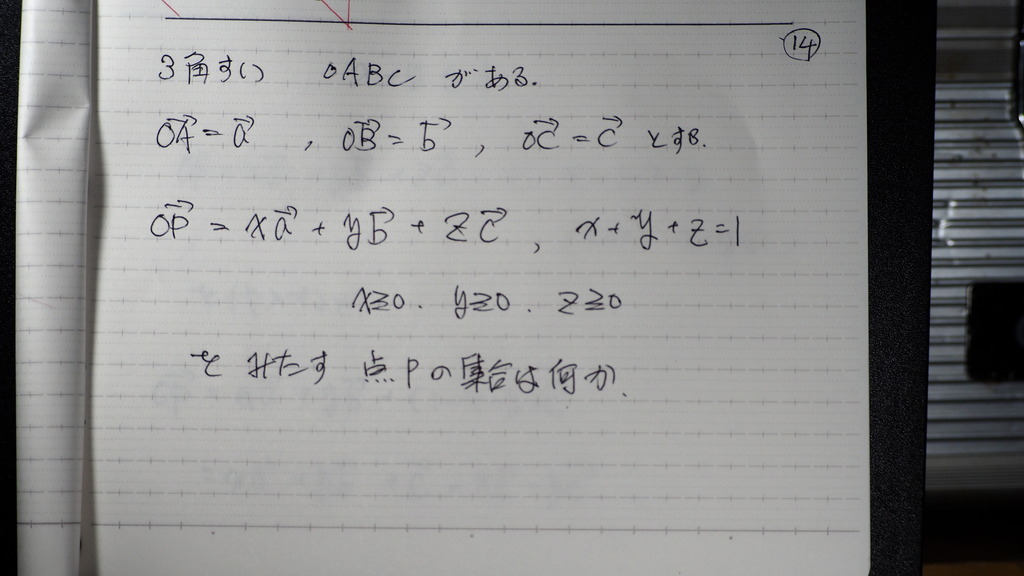 ⑭
3角すい OABC がある.
$\overrightarrow{OA} = \vec{a}$ , $\overrightarrow{OB} = \vec{b}$ , $\overrightarrow{OC} = \vec{c}$ とする.
$\overrightarrow{OP} = x\vec{a} + y\vec{b} + z\vec{c}$ , $x + y + z = 1$
$x \geqq 0$ . $y \geqq 0$ . $z \geqq 0$
をみたす 点Pの集合は何か.